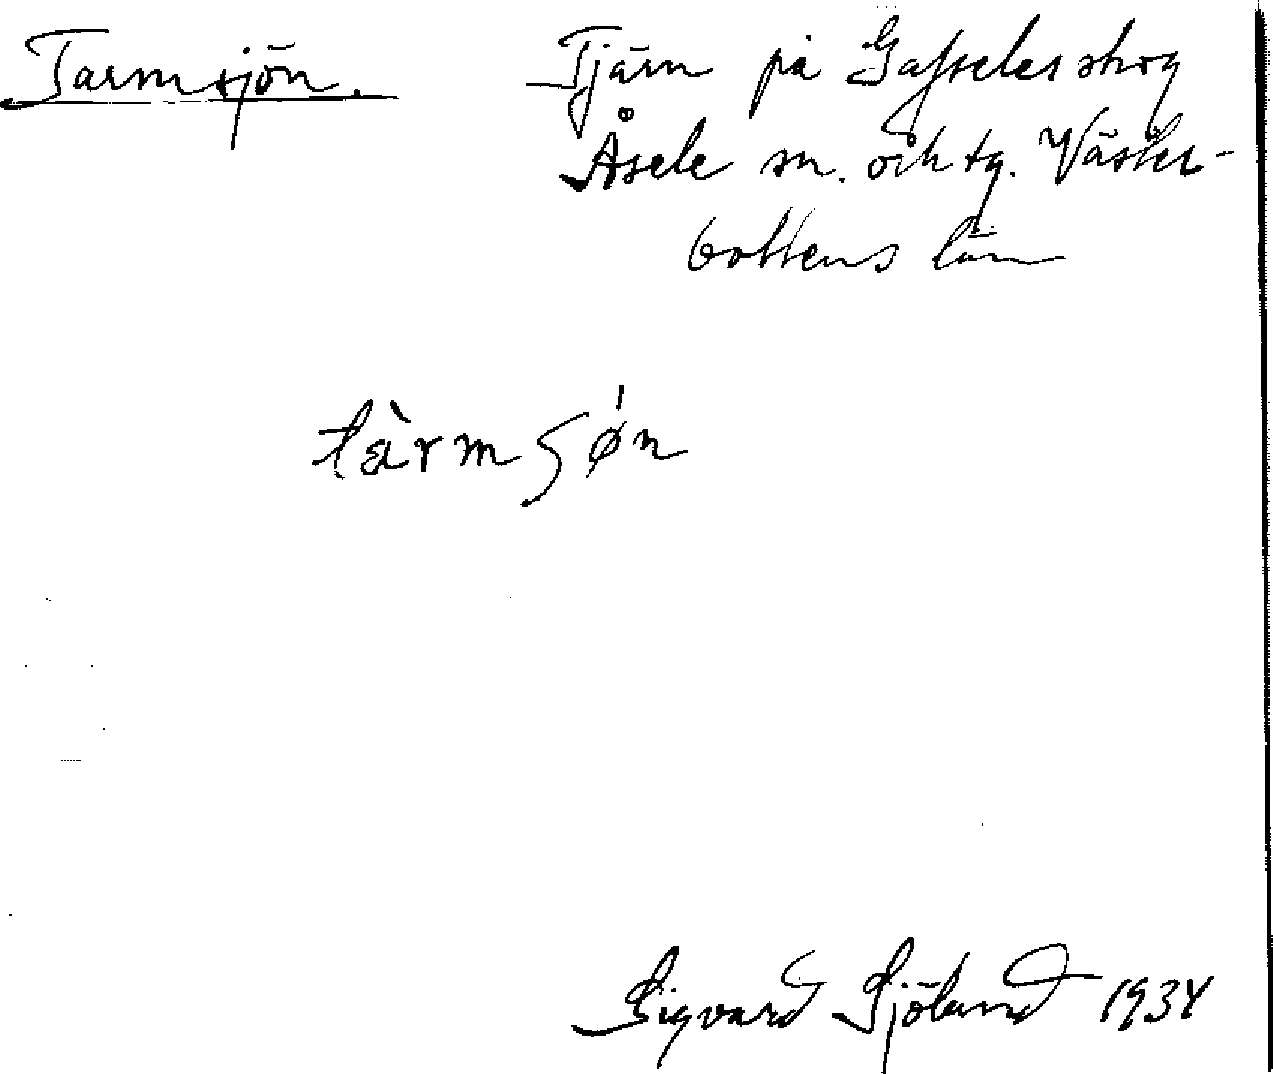 Tarmsjön. Tjärn på Gafseles skog
Åsele sn. och tg. Väster-
bottens län
tàrmʃøn
Sigvard Sjölund 1934